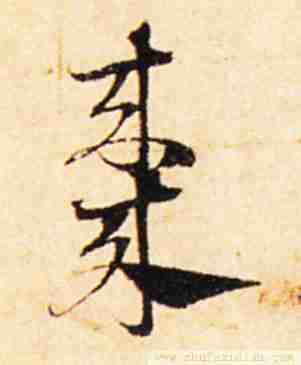 棗
www.shufazidian.com